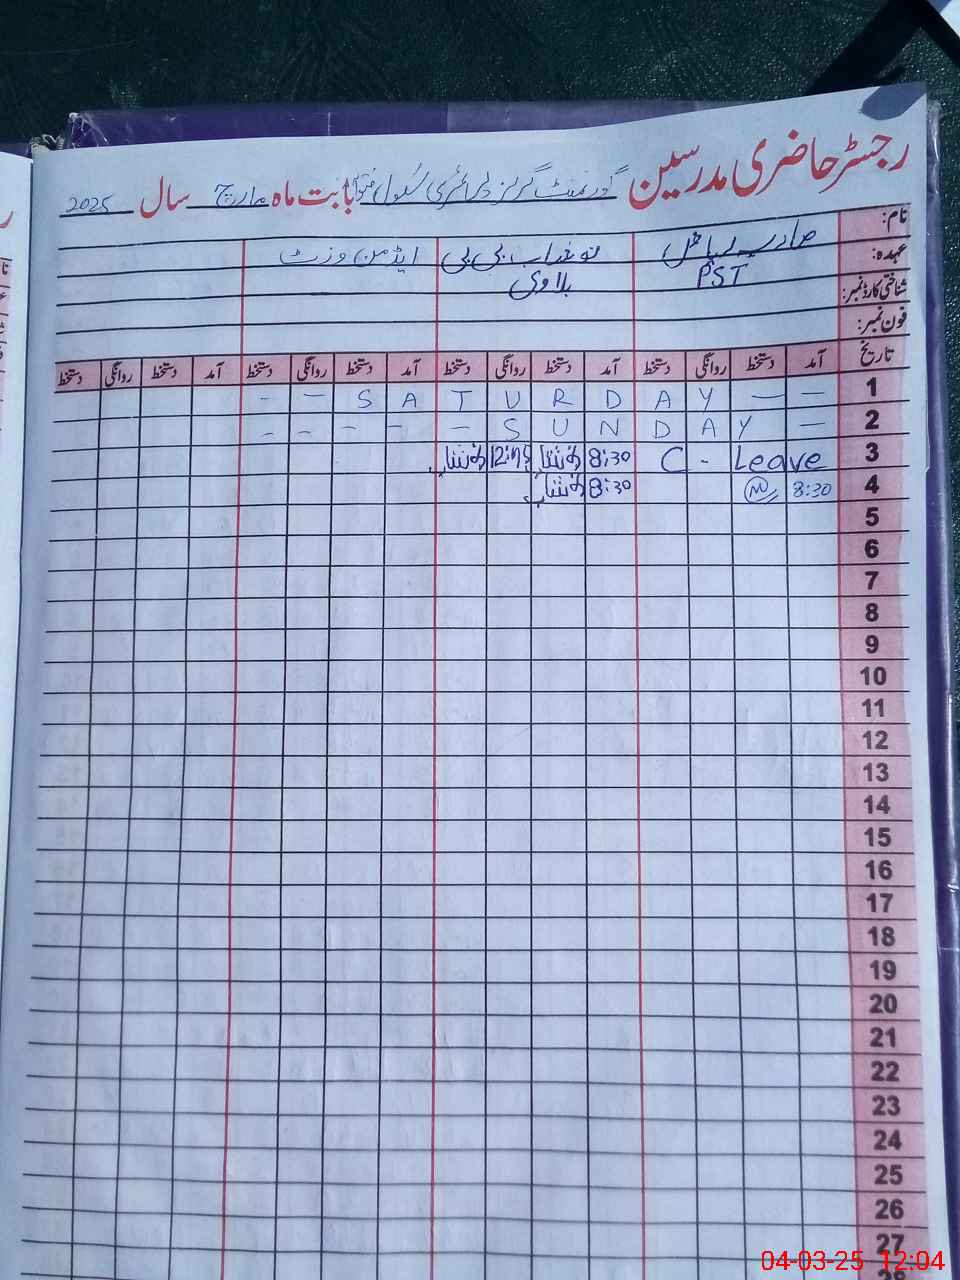 رجسٹر حاضری مدرسین گورنمنٹ گرلز پرائمری سکول بابت ماہ مارچ سال 2025
نام:
عہدہ: PST نوشاب بی بی ایڈمن وزٹ
شناختی کارڈ نمبر:
فون نمبر:
تاریخ آمد دستخط روانگی دستخط آمد دستخط روانگی دستخط آمد دستخط روانگی دستخط آمد دستخط روانگی دستخط
1 - - S A T U R D A Y - -
2 - - - - - S U N D A Y -
3 C - Leave 8:30 نوشاب 12:45 نوشاب
4 8:30 8:30 نوشاب
5
6
7
8
9
10
11
12
13
14
15
16
17
18
19
20
21
22
23
24
25
26
27
28
04-03-25 12:04